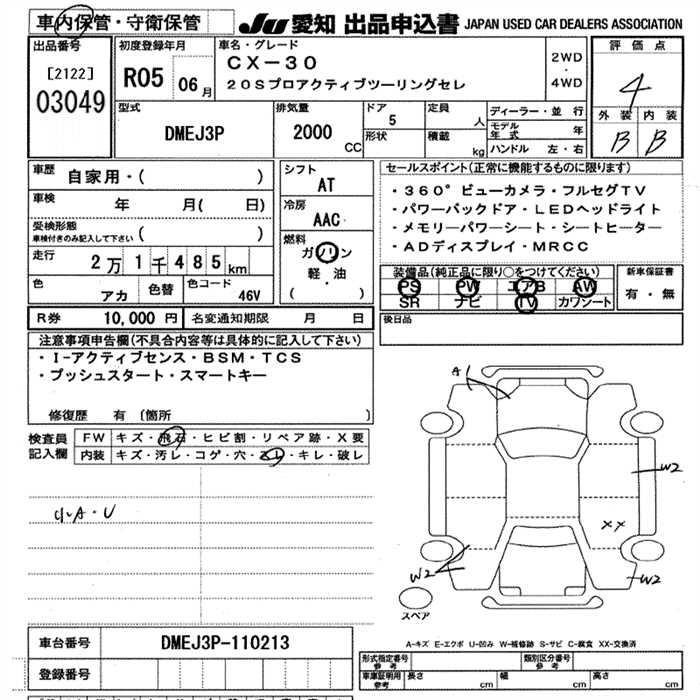 車内保管・守衛保管 JU 愛知 出品申込書 JAPAN USED CAR DEALERS ASSOCIATION
出品番号 [2122] 03049
初度登録年月 R05 06月
車名・グレード CX-30
20Sプロアクティブツーリングセレ
2WD・4WD
評価点 4
外装 内装
B B
型式 DMEJ3P
排気量 2000 CC
ドア 5
形状
定員 人
積載 kg
ディーラー・並行
モデル年式 年
ハンドル 左・右
車歴 自家用・( )
車検 年 月( 日)
受検形態 車検付きのみ記入して下さい ( )
走行 2万1千485km
色 アカ 色替 色コード 46V
シフト AT
冷房 AAC
燃料 ガソリン
軽・油
( )
セールスポイント(正常に機能するものに限ります)
・360°ビューカメラ・フルセグTV
・パワーバックドア・LEDヘッドライト
・メモリーパワーシート・シートヒーター
・ADディスプレイ・MRCC
装備品(純正品に限り○をつけてください)
PS PW エアB AW
SR ナビ TV カワシート
新車保証書
有・無
R券 10,000円 名変通知期限 月 日
後日品
注意事項申告欄(不具合内容等は具体的に記入して下さい)
・I-アクティブセンス・BSM・TCS
・プッシュスタート・スマートキー
修復歴 有 (箇所 )
検査員記入欄
FW キズ・飛石・ヒビ割・リペア跡・X要
内装 キズ・汚レ・コゲ・穴・スレ・キレ・破レ
小A・U
A
W2
XX
W2
W2
スペア
A-キズ E-エクボ U-凹み W-補修跡 S-サビ C-腐食 XX-交換済
車台番号 DMEJ3P-110213
登録番号
形式指定番号 参考
類別区分番号 参考
車庫証明用 参考 長さ cm 幅 cm 高さ cm